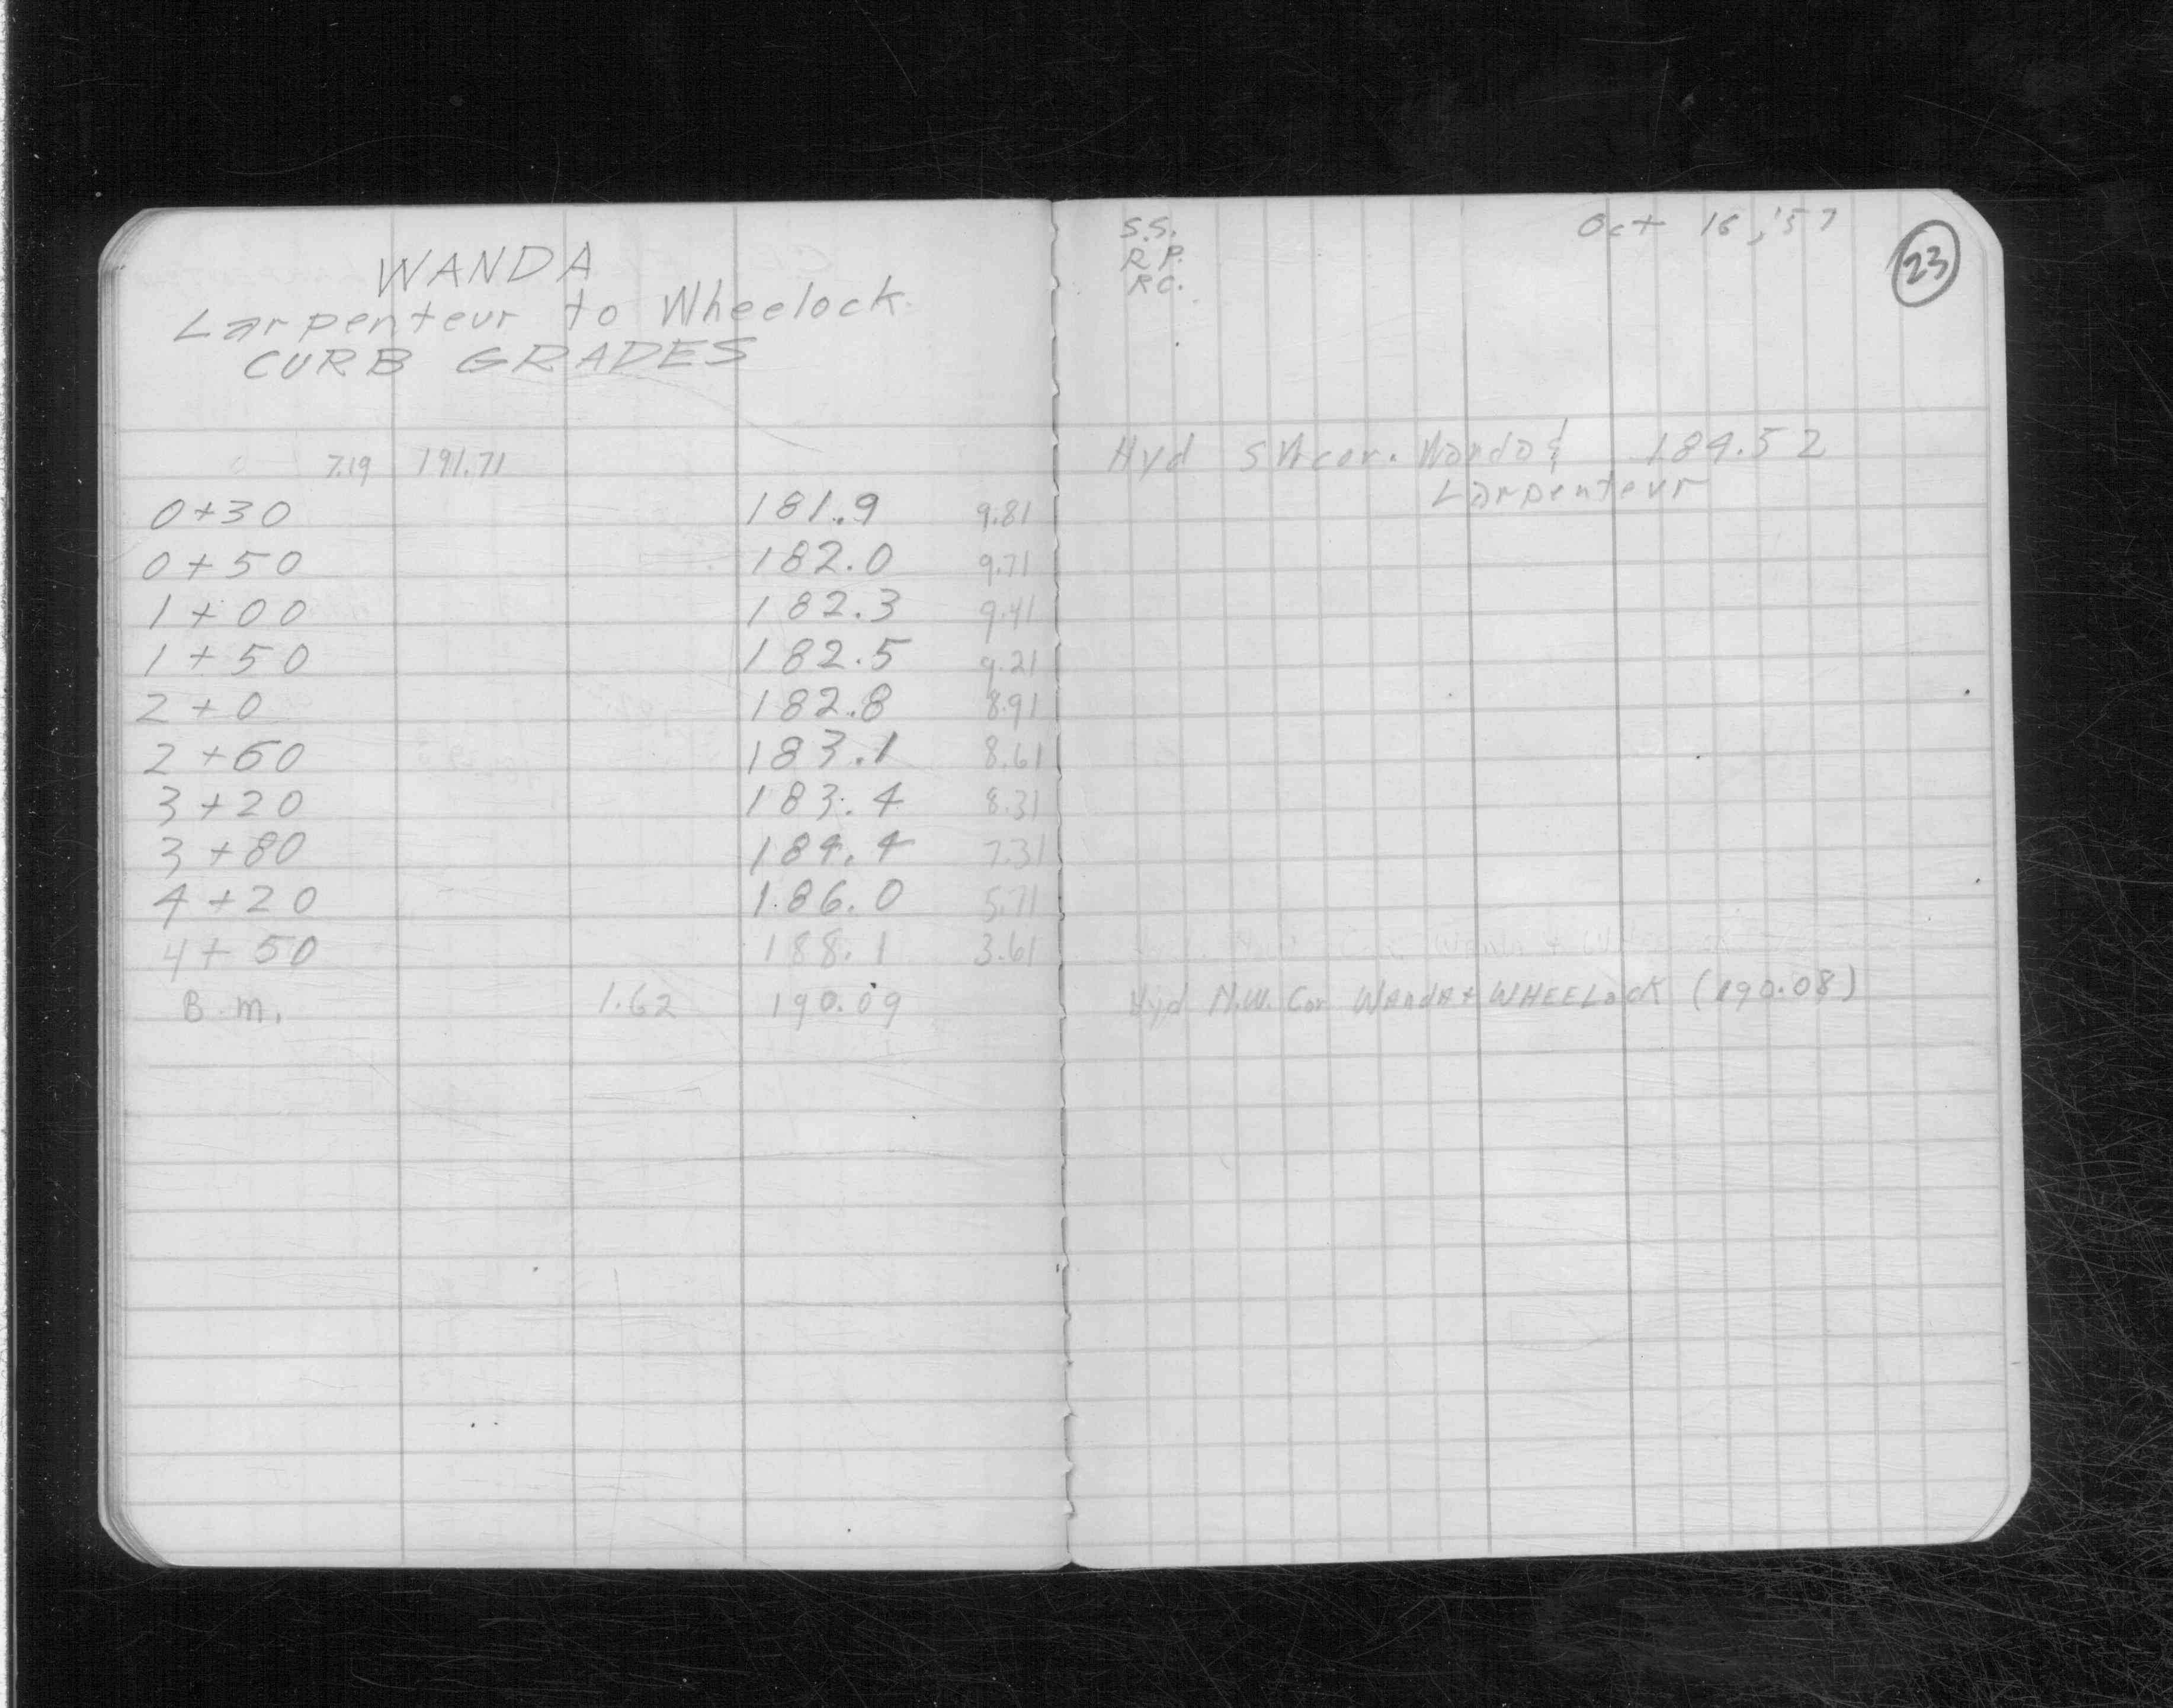 WANDA
Larpenteur to Wheelock
CURB GRADES
7.19 191.71
0+30 181.9 9.81
0+50 182.0 9.71
1+00 182.3 9.41
1+50 182.5 9.21
2+0 182.8 8.91
2+60 183.1 8.61
3+20 183.4 8.31
3+80 184.4 7.31
4+20 186.0 5.71
4+50 188.1 3.61
B.m. 1.62 190.09
S.S. Oct 16, '57
R.P.
RC.
23
Hyd cor. Wanda & 184.52
Larpenteur
Cor. Wanda +
Hyd N.W. Cor Wanda + WHEELock (190.08)